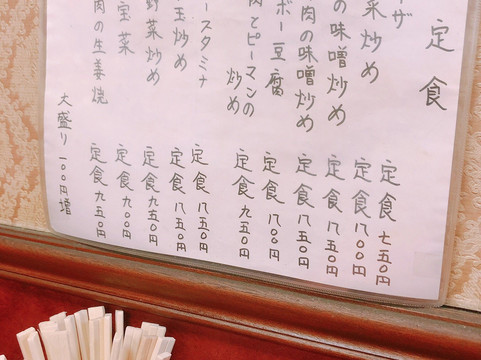 定食
ーザ 定食 七五〇円
菜炒め 定食 八〇〇円
の味噌炒め 定食 八五〇円
肉の味噌炒め 定食 八五〇円
ボー豆腐 定食 八〇〇円
肉とピーマンの
炒め 定食 九五〇円
ースタミナ 定食 八五〇円
玉炒め 定食 八五〇円
野菜炒め 定食 九五〇円
宝菜 定食 九〇〇円
肉の生姜焼 定食 九五〇円
大盛り一〇〇円増